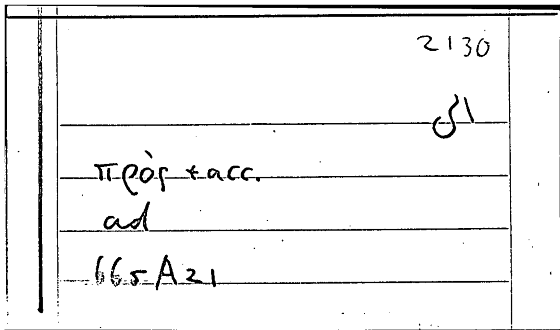 2130
الى
πρὸς + acc.
ad
665 A 21